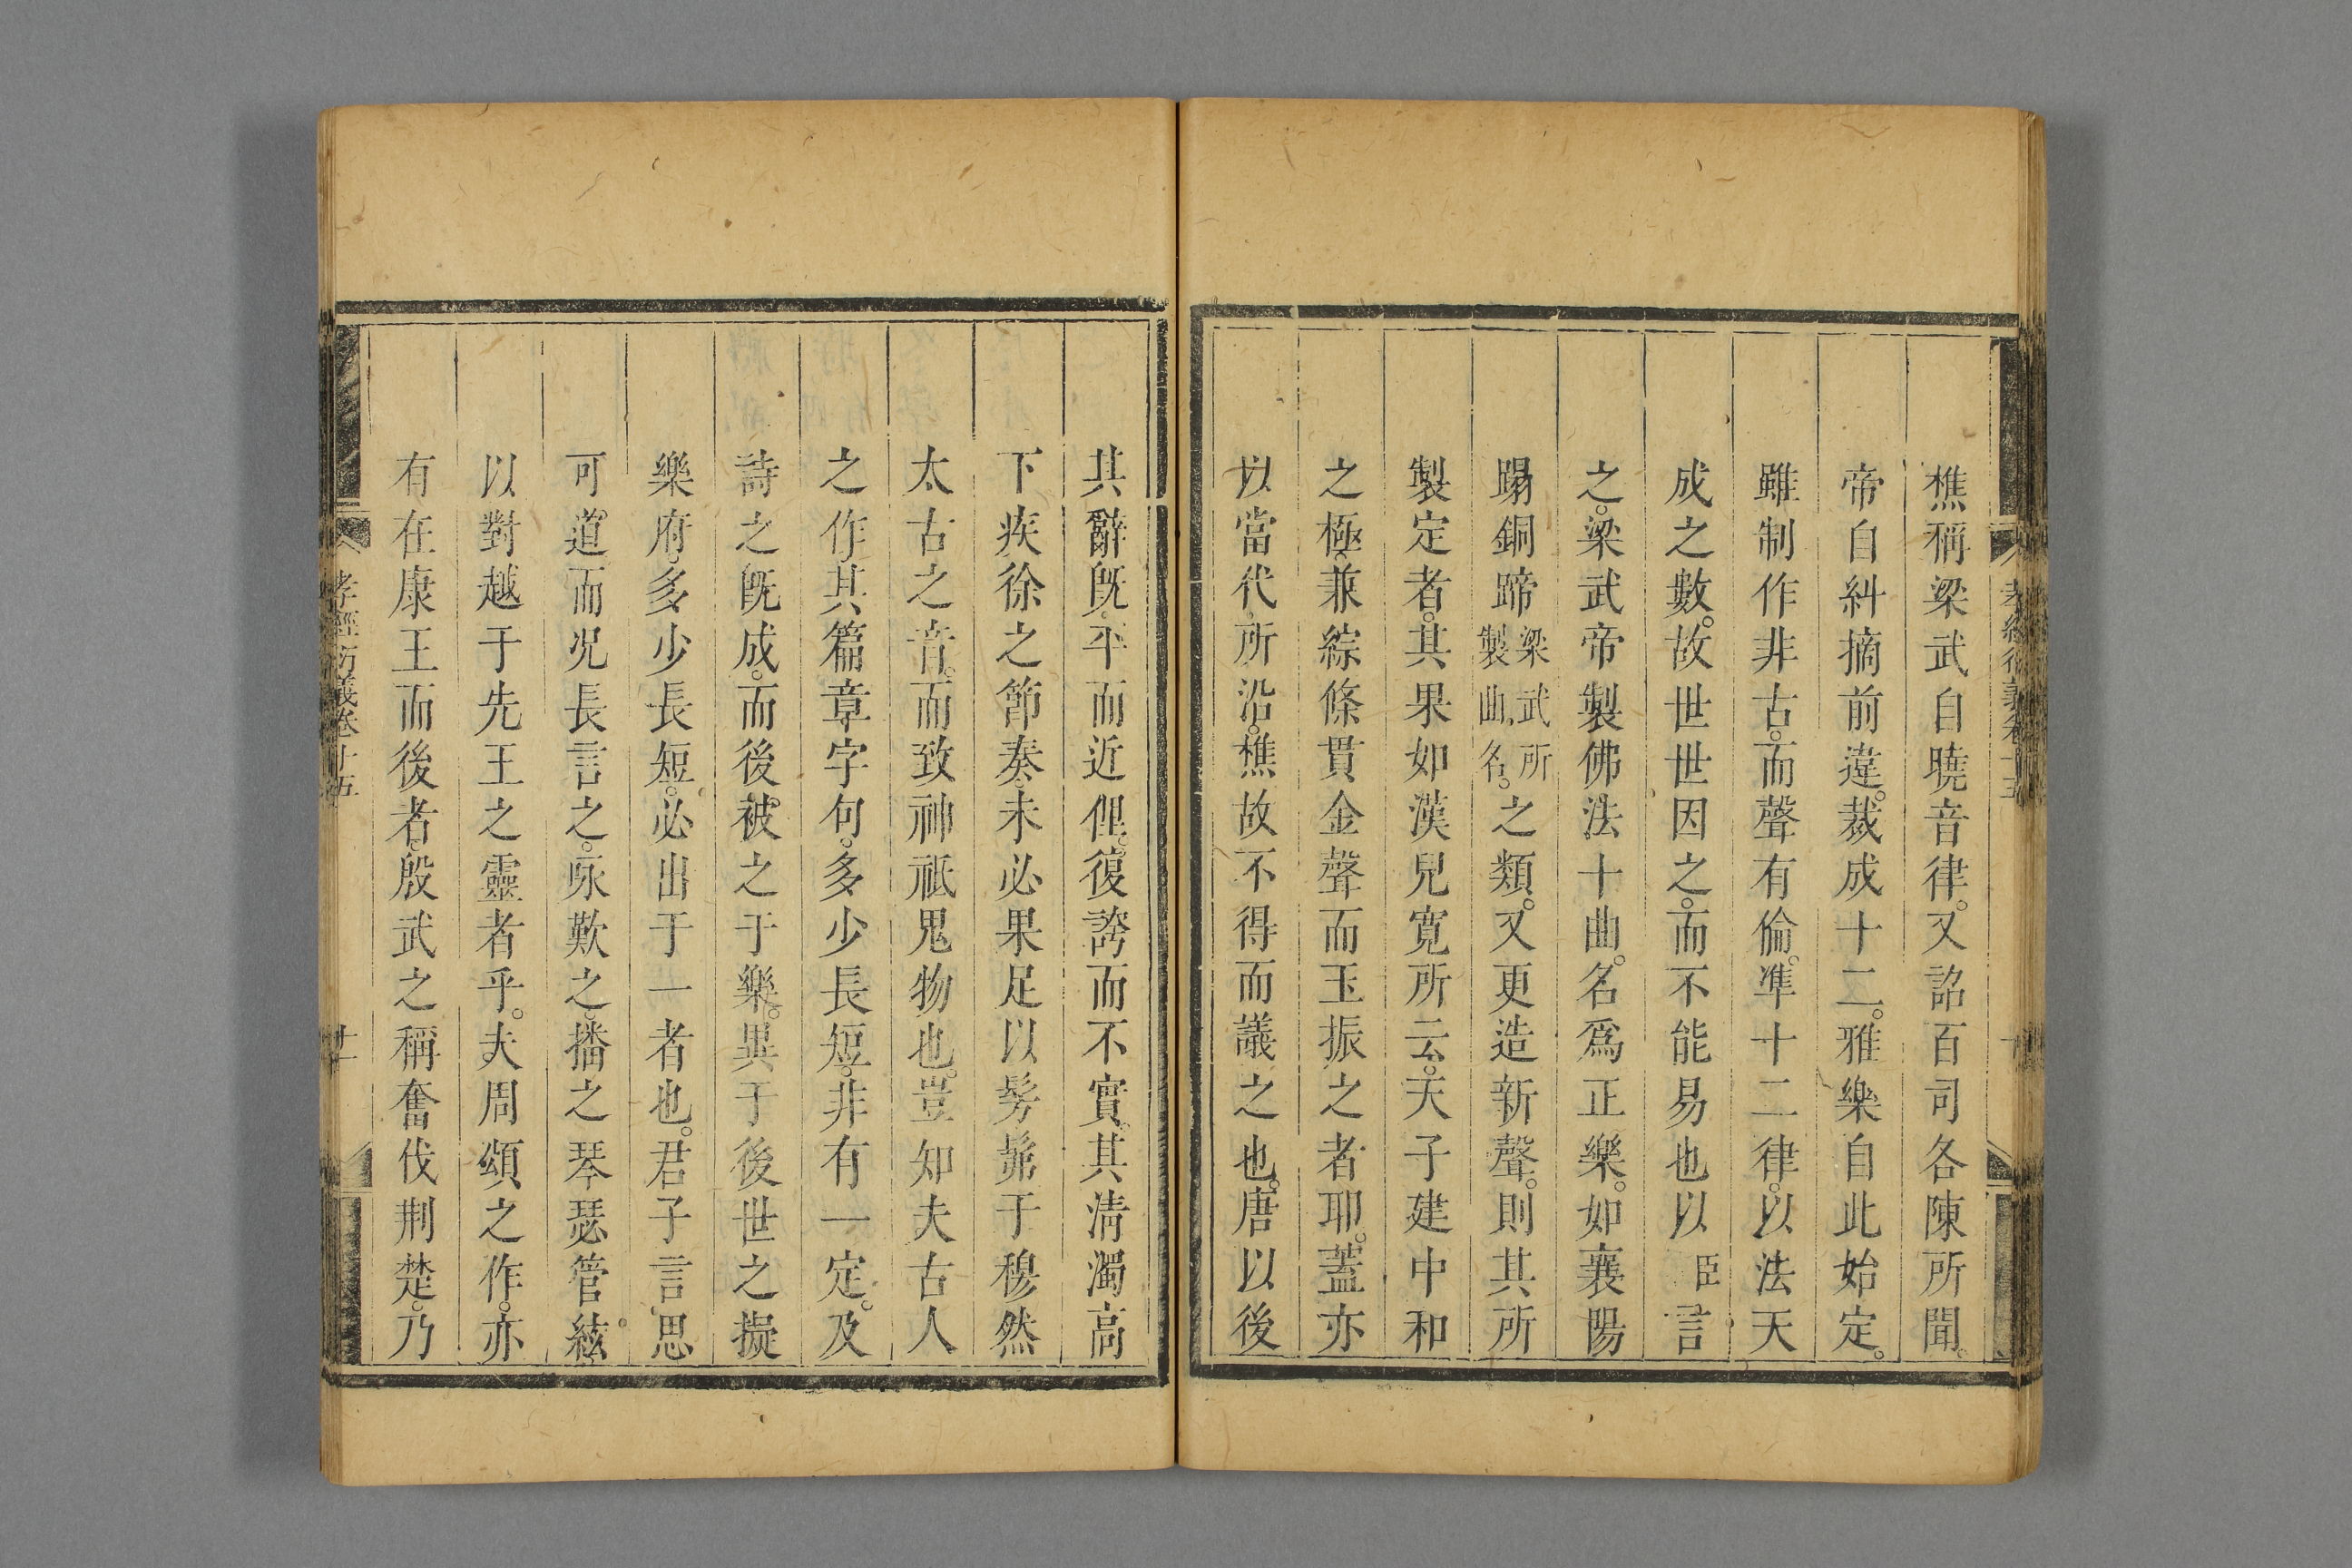 樵稱梁武自曉音律。又詔百司各陳所聞。
帝自糾摘前違。裁成十二。雅樂自此始定。
雖制作非古。而聲有倫。準十二律。以法天
成之數。故世世因之。而不能易也以臣言
之。梁武帝製佛法十曲。名爲正樂。如襄陽
蹋銅蹄梁武所製曲名。之類。又更造新聲。則其所
製定者。其果如漢兒寬所云。天子建中和
之極。兼綜條貫金聲而玉振之者耶。蓋亦
以當代所沿。樵故不得而議之也。唐以後
其辭既平而近俚。復誇而不實。其淸濁高
下疾徐之節奏。未必果足以髣髴于穆然
太古之音。而致神祇鬼物也。豈知夫古人
之作。其篇章字句。多少長短。非有一定。及
詩之旣成。而後被之于樂。異于後世之擬
樂府。多少長短。必出于一者也。君子言思
可道。而况長言之。詠歎之。播之琴瑟管絃。
以對越于先王之靈者乎。夫周頌之作。亦
有在康王而後者。殷武之稱奮伐荆楚。乃
孝經衍義卷十五
十一